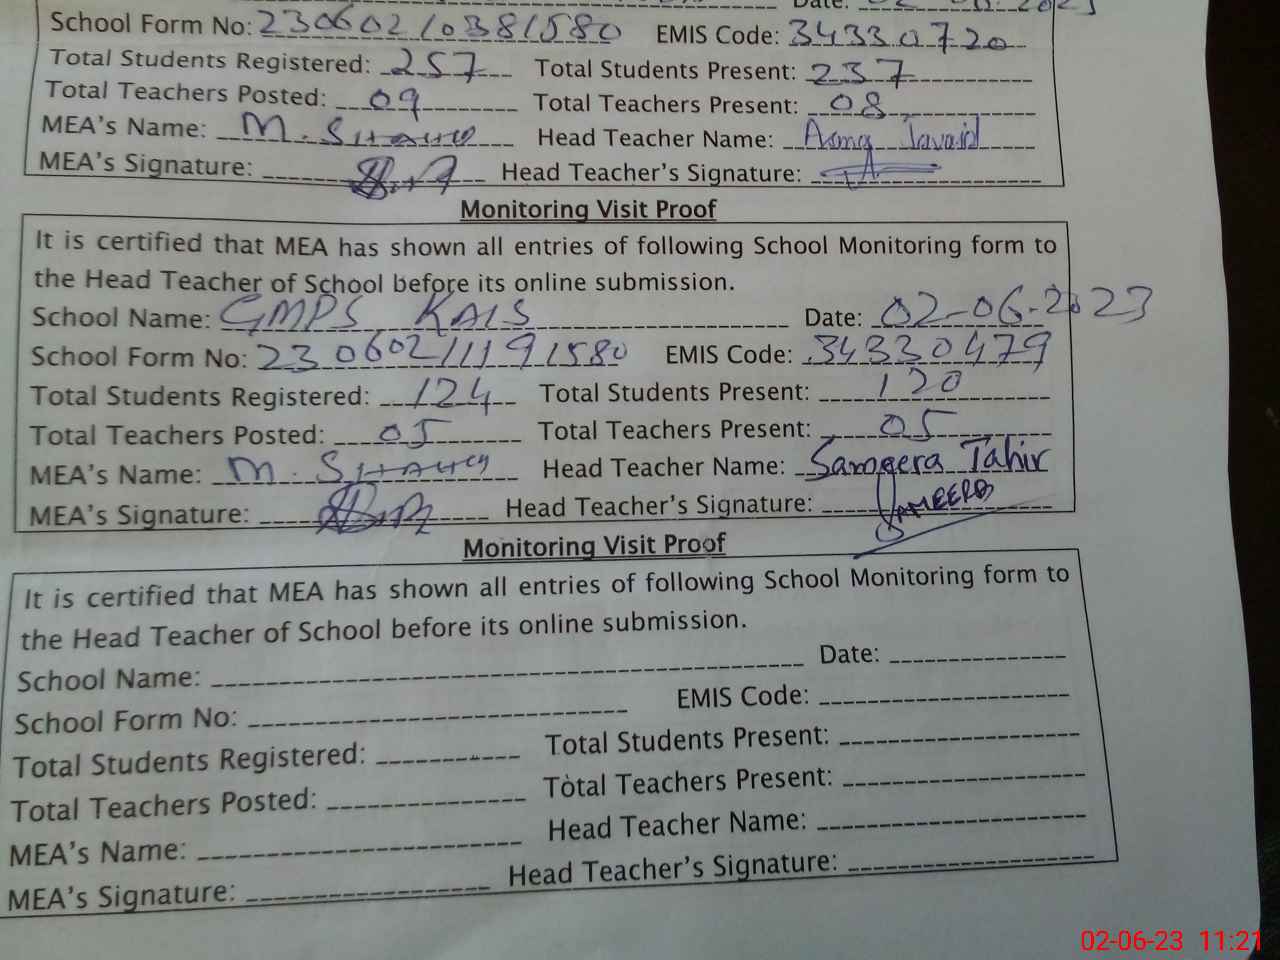 Date: 02-06-2023
School Form No: 23060210381580 EMIS Code: 34330720
Total Students Registered: 257 Total Students Present: 237
Total Teachers Posted: 09 Total Teachers Present: 08
MEA's Name: M. Head Teacher Name: Asma Javaid
MEA's Signature: Head Teacher's Signature:
Monitoring Visit Proof
It is certified that MEA has shown all entries of following School Monitoring form to
the Head Teacher of School before its online submission.
School Name: GMPS KALS Date: 02-06-2023
School Form No: 230602111191580 EMIS Code: 34330479
Total Students Registered: 124 Total Students Present: 120
Total Teachers Posted: 05 Total Teachers Present: 05
MEA's Name: M. Head Teacher Name: Sameera Tahir
MEA's Signature: Head Teacher's Signature: SAMEERA
Monitoring Visit Proof
It is certified that MEA has shown all entries of following School Monitoring form to
the Head Teacher of School before its online submission.
School Name: Date:
School Form No: EMIS Code:
Total Students Registered: Total Students Present:
Total Teachers Posted: Total Teachers Present:
MEA's Name: Head Teacher Name:
MEA's Signature: Head Teacher's Signature:
02-06-23 11:21